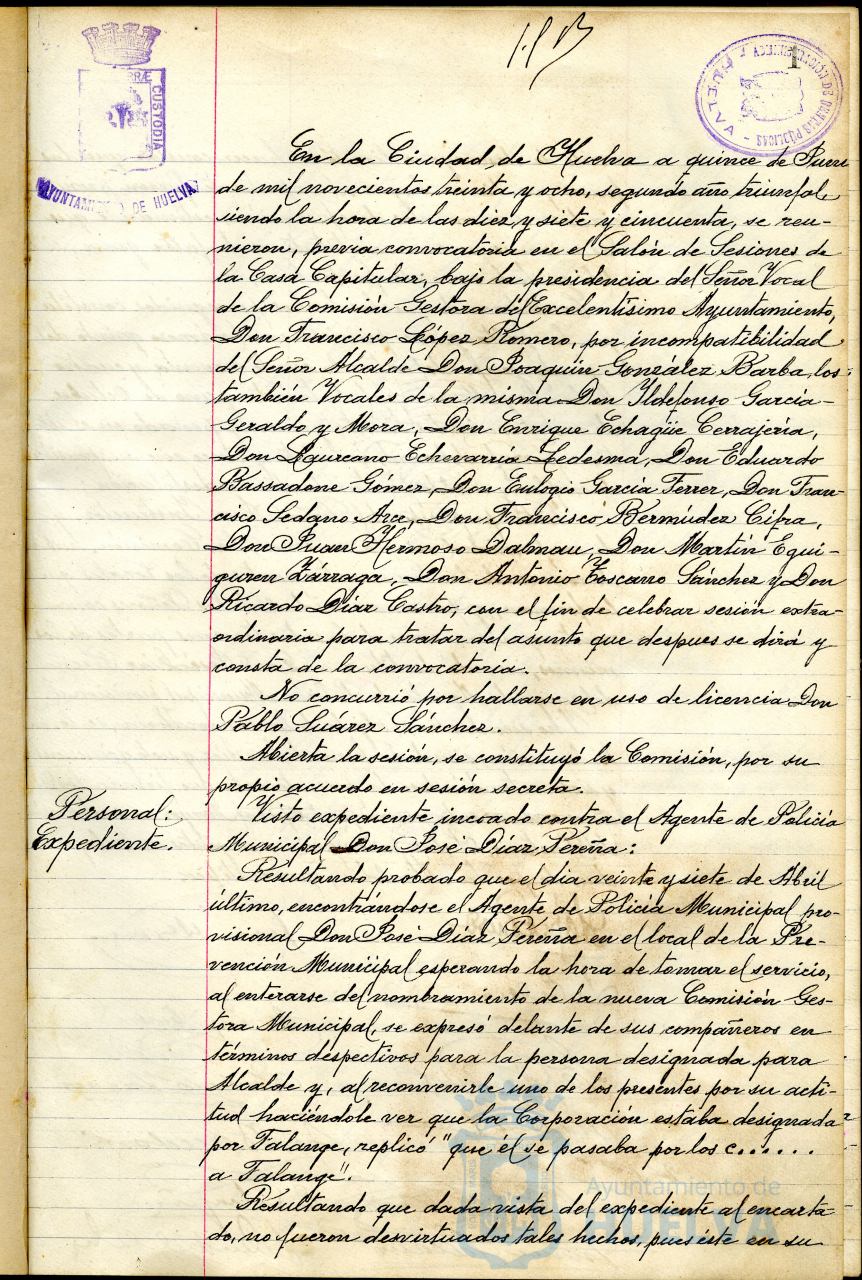 1
PRÆ
CUSTODIA
AYUNTAMIENTO DE HUELVA
HUELVA
En la Ciudad de Huelva a quince de Juni
de mil novecientos treinta y ocho, segundo año triunfal,
siendo la hora de las diez y siete y cincuenta, se reu-
nieron, previa convocatoria en el Salón de Sesiones de
la Casa Capitular, bajo la presidencia del Señor Vocal
de la Comisión Gestora del Excelentísimo Ayuntamiento,
Don Francisco López Romero, por incompatibilidad
del Señor Alcalde Don Joaquín González Barba, los
también Vocales de la misma Don Ildefonso García-
Geraldo y Mora, Don Enrique Echagüe Cerrajería,
Don Laureano Echevarría Ledesma, Don Eduardo
Bassadone Gómez, Don Eulogio García Ferrer, Don Fran-
cisco Sedano Arce, Don Francisco Bermúdez Cifra,
Don Juan Hermoso Dalmau, Don Martín Egui-
guren Zárraga, Don Antonio Toscano Sánchez y Don
Ricardo Díaz Castro, con el fin de celebrar sesión extra-
ordinaria para tratar del asunto que despues se dirá y
consta de la convocatoria.
No concurrió por hallarse en uso de licencia Don
Pablo Suárez Sánchez.
Abierta la sesión, se constituyó la Comisión, por su
propio acuerdo en sesión secreta.
Personal:
Expediente.
Visto expediente incoado contra el Agente de Policía
Municipal Don José Díaz Pereña:
Resultando probado que el dia veinte y siete de Abril
último, encontrándose el Agente de Policía Municipal pro-
visional Don José Díaz Pereña en el local de la Pre-
vención Municipal esperando la hora de tomar el servicio,
al enterarse del nombramiento de la nueva Comisión Ges-
tora Municipal, se expresó delante de sus compañeros en
términos despectivos para la persona designada para
Alcalde y, al reconvenirle uno de los presentes por su acti-
tud haciéndole ver que la Corporación estaba designada
por Falange, replicó "que él se pasaba por los c......
a Falange".
Resultando que dada vista del expediente al encarta-
do, no fueron desvirtuados tales hechos, pues éste en su
Ayuntamiento de
HUELVA